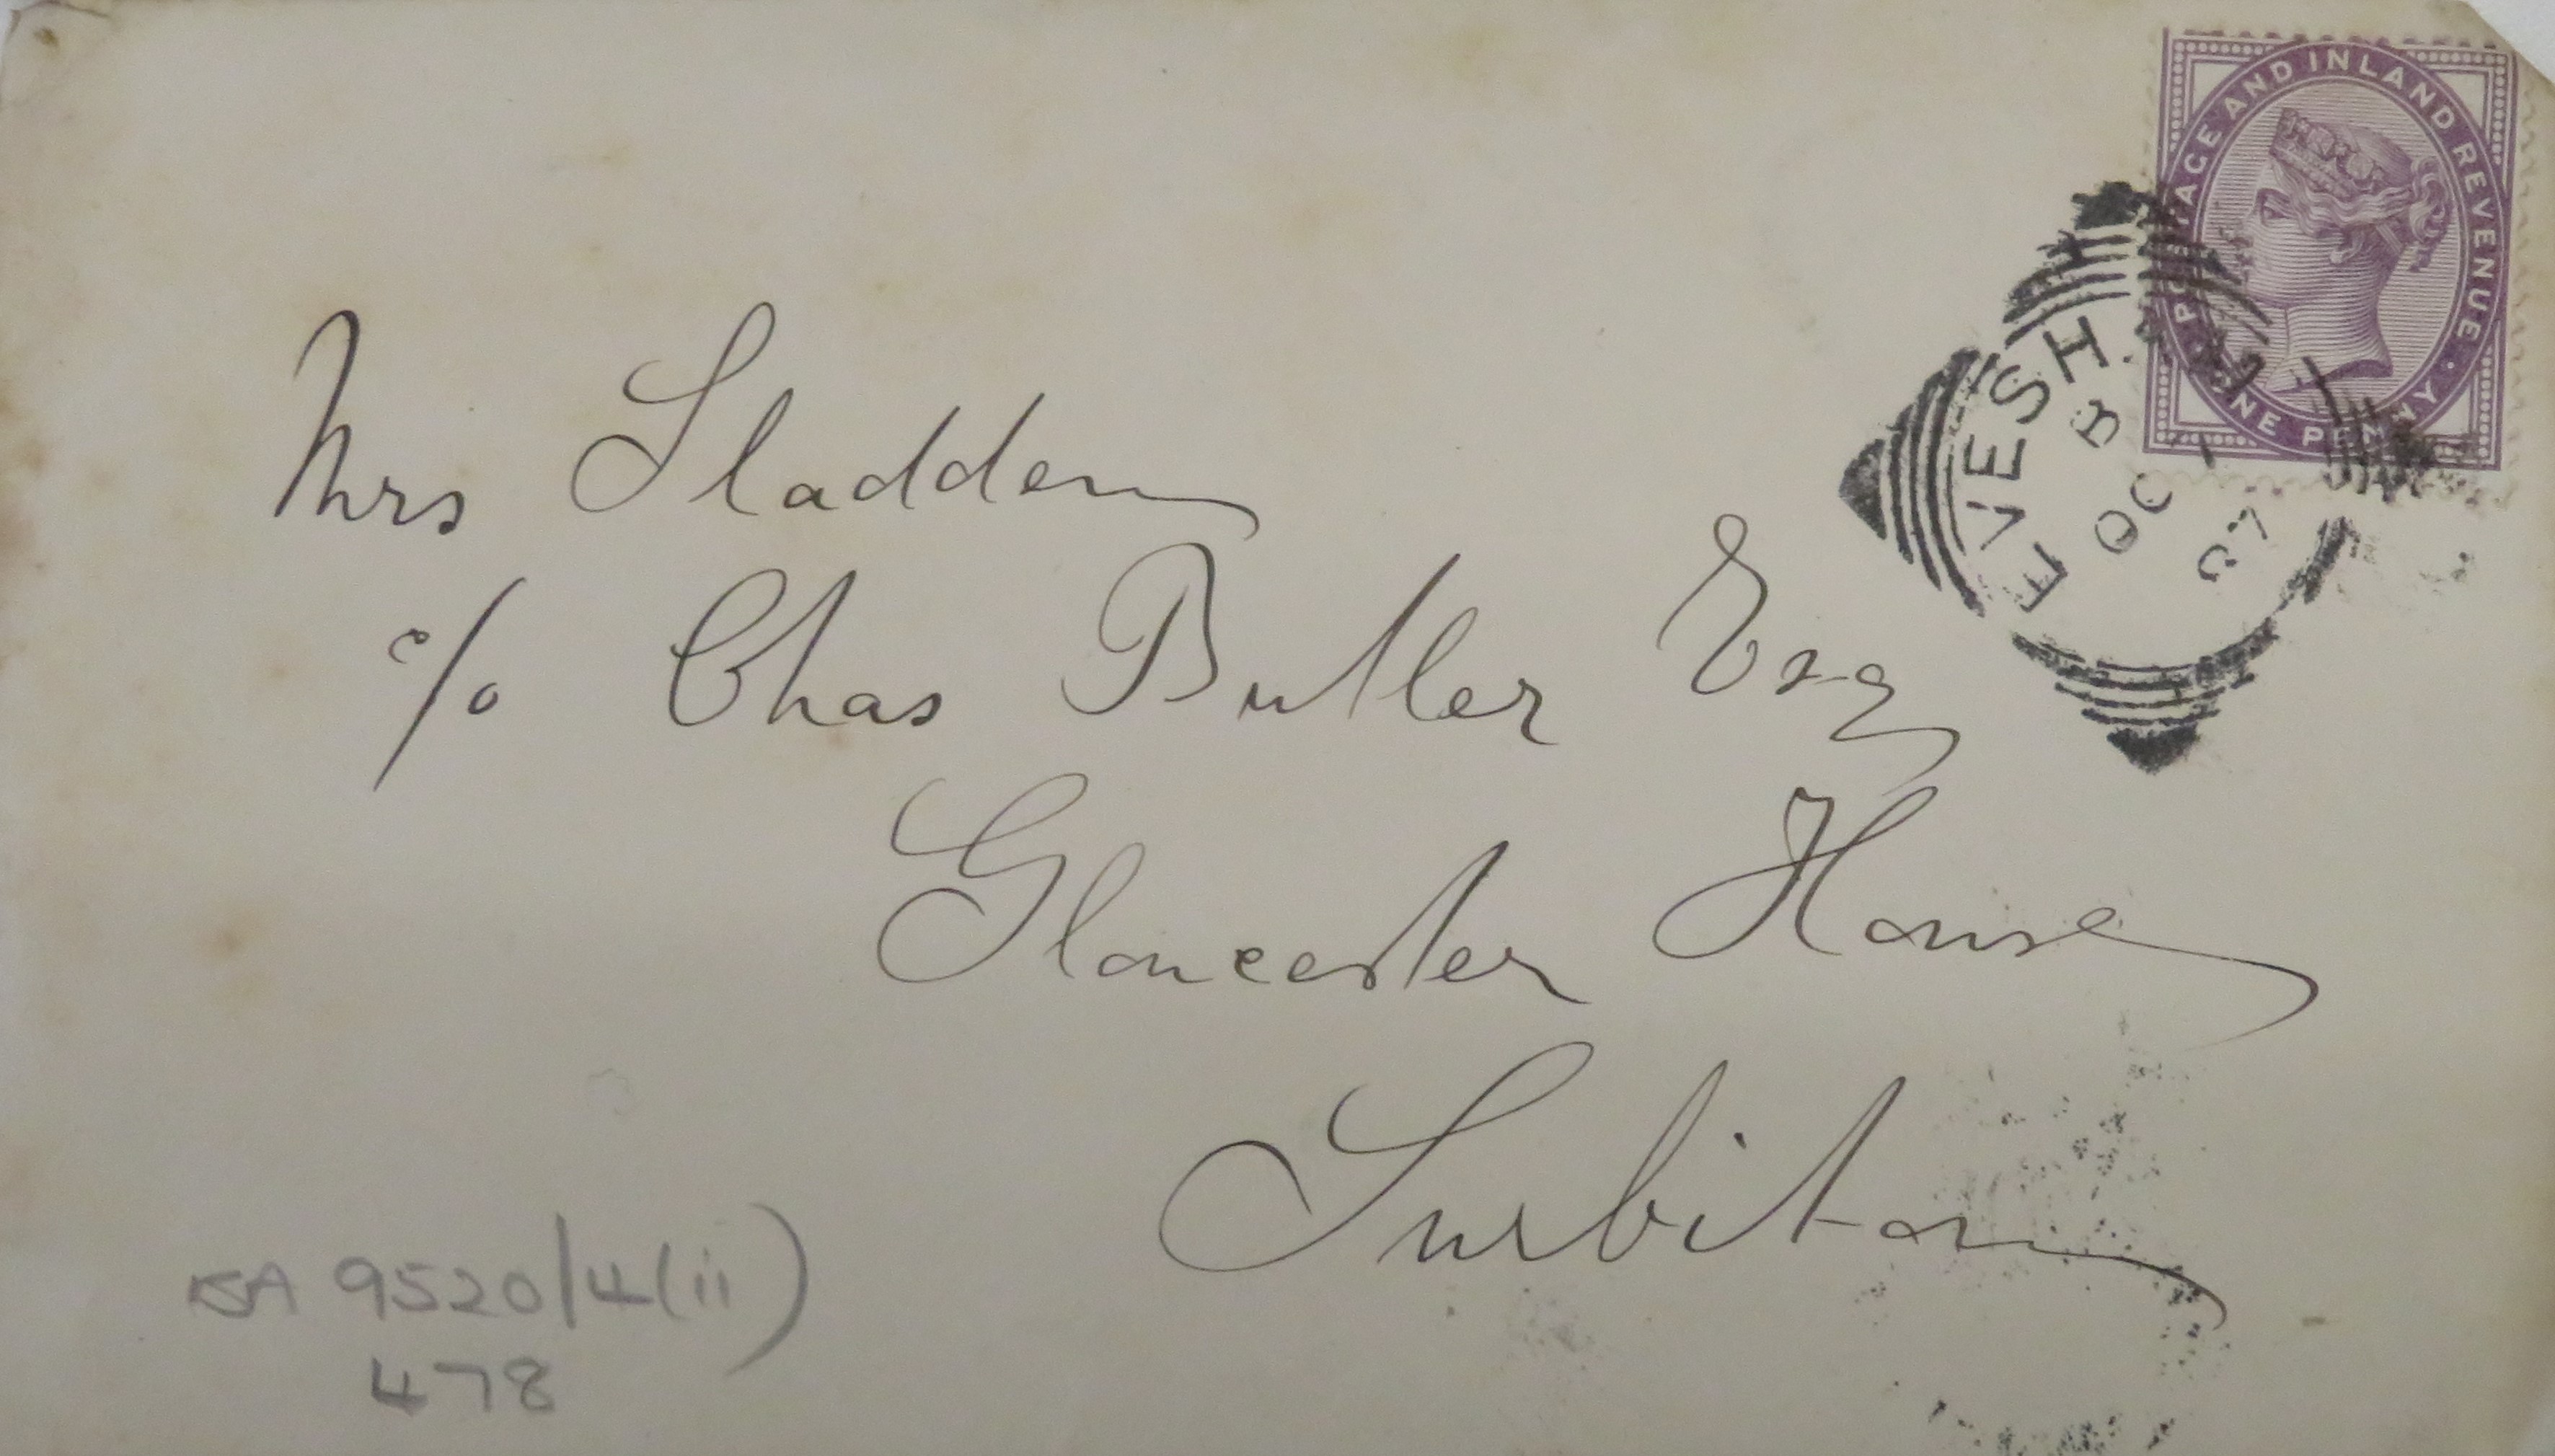 POSTAGE AND INLAND REVENUE · ONE PENNY
EVESH
B
OC 1
Mrs Sladden
c/o Chas Butler Esq
Gloucester House
Surbiton
9520/4(ii)
478